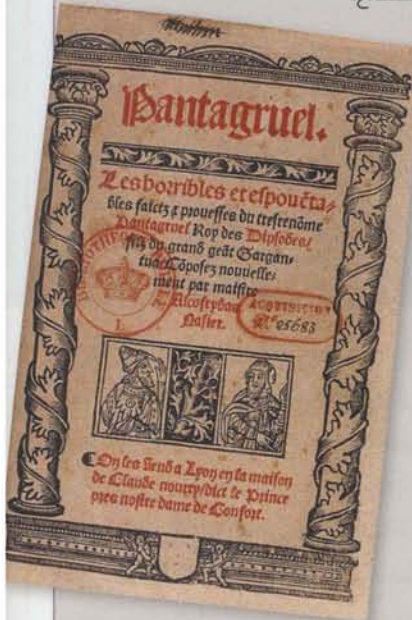 Pantagruel.
Les horribles et espouēta-
bles faictz ⁊ prouesses du tresrenōme
Pantagruel Roy des Dipsodes/
filz du grand geāt Gargan-
tua/ Cōposez nouuelle-
ment par maistre
Alcofrybas
Nasier.
ACQUISITION
No 95683
On les vend a Lyon en la maison
de Claude nourry/dict le Prince
pres nostre dame de Confort.